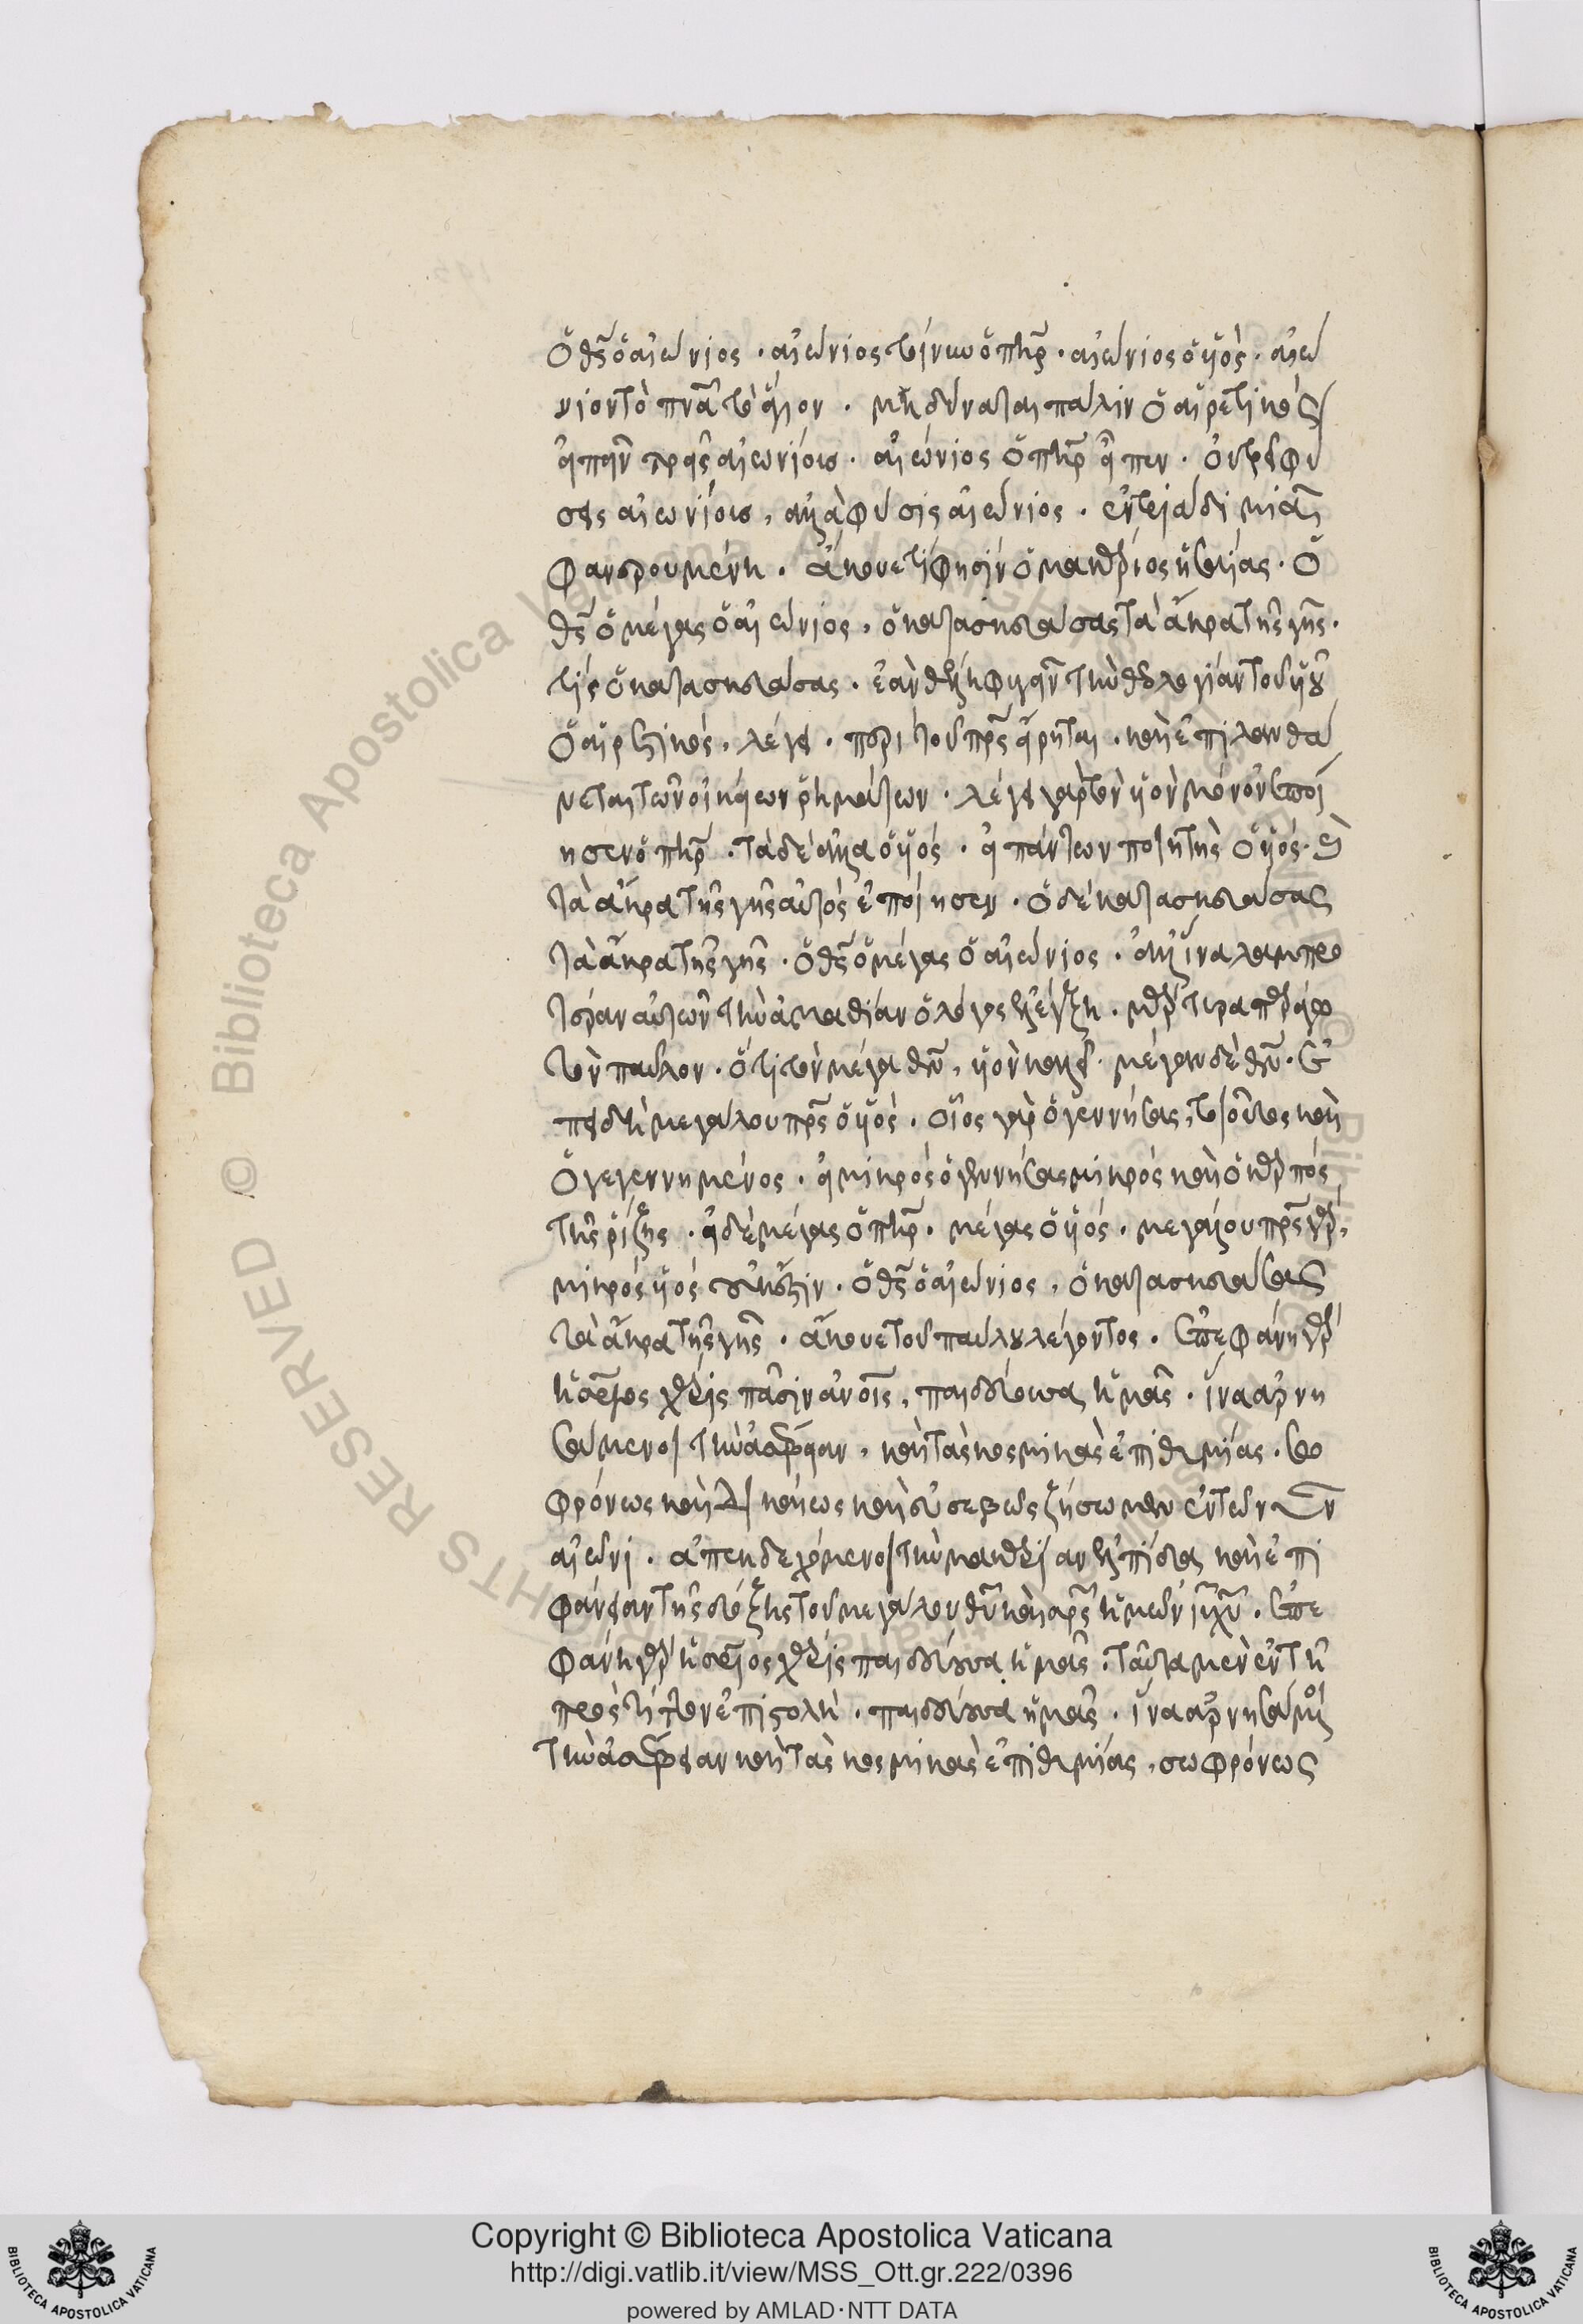 ὁ θς ὁ αἰώνιος · αἰώνιος τοίνυν ὁ πηρ · αἰώνιος ὁ ϋϊὸς · αἰώ
νιον τὸ πνα τὸ ἅγιον · μὴ δύναται πάλιν ὁ αἱρετικὸς
εἰπεῖν τρεῖς αἰωνίους · αἰώνιος ὁ πηρ εἶπεν · οὐ τρεῖς φύ
σεις αἰωνίους, ἀλλὰ φύσις αἰώνιος · ἐν τριάδι μιᾶ
φανερουμένη · ἄκουε τί φησὶν ὁ μακάριος ἡσαΐας · ὁ
θς ὁ μέγας ὁ αἰώνιος, ὁ κατασκευάσας τὰ ἄκρα τῆς γῆς ·
τίς ὁ κατασκευάσας · ἐὰν θέλη φυγεῖν τὴν θεολογίαν τοῦ ϋϊοῦ
ὁ αἱρετικός, λέγει · περὶ τοῦ πρς εἴρηται · καὶ ἐπιλανθά
νεται τῶν οἰκείων ῥημάτων · λέγει γὰρ τὸν ϋϊὸν μόνον ἐποί
ησεν ὁ πηρ · τὰ δὲ ἄλλα ὁ ϋϊός · εἰ πάντων ποιητὴς ὁ ϋϊός · καὶ
τὰ ἄκρα τῆς γῆς αὐτὸς ἐποίησεν · ὁ δὲ κατασκευάσας
τὰ ἄκρα τῆς γῆς · ὁ θς ὁ μέγας ὁ αἰώνιος · ἀλλ' ἵνα λαμπρο
τέραν αὐτῶν τὴν ἀμαθίαν ὁ λόγος ἐλέγξη · παράγω
τὸν παῦλον · ὅτι τὸν μέγαν θν, ϋϊὸν καλεῖ · μέγαν δὲ θν · ἐ
πειδὴ μεγάλου πρς ὁ ϋϊὸς · οἷος γὰρ ὁ γεννήσας, τοιοῦτος καὶ
ὁ γεγεννημένος · εἰ μικρὸς ὁ γεννήσας μικρὸς καὶ ὁ καρπός
τῆς ῥίζης · εἰ δὲ μέγας ὁ πηρ · μέγας ὁ ϋϊός · μεγάλου πρς γὰρ,
μικρὸς ϋϊὸς οὐκ ἔστιν · ὁ θς ὁ αἰώνιος, ὁ κατασκευάσας
τὰ ἄκρα τῆς γῆς · ἄκουε τοῦ παύλου λέγοντος · ἐπεφάνη γὰρ
ἡ σωτήριος χάρις πᾶσιν ἀνοις, παιδεύουσα ἡμᾶς · ἵνα ἀρνη
σάμενοι τὴν ἀσέβειαν, καὶ τὰς κοσμικὰς ἐπιθυμίας · σω
φρόνως καὶ δικαίως καὶ εὐσεβῶς ζήσωμεν ἐν τῶ νῦν
αἰῶνι · ἀπεκδεχόμενοι τὴν μακαρίαν ἐλπίδα καὶ ἐπι
φάνειαν τῆς δόξης τοῦ μεγάλου θυ καὶ σρς ἡμῶν ιυ χυ · ἐπε
φάνη γὰρ ἡ σωτήριος χάρις παιδεύουσα ἡμᾶς · ταῦτα μὲν ἐν τῆ
πρὸς τίτον ἐπιστολῆ · παιδεύουσα ἡμᾶς · ἵνα ἀρνησάμενοι
τὴν ἀσέβειαν καὶ τὰς κοσμικὰς ἐπιθυμίας, σωφρόνως
© Biblioteca Apostolica Vaticana
Copyright © Biblioteca Apostolica Vaticana
http://digi.vatlib.it/view/MSS_Ott.gr.222/0396
powered by AMLAD·NTT DATA
BIBLIOTECA APOSTOLICA VATICANA
BIBLIOTECA APOSTOLICA VATICANA